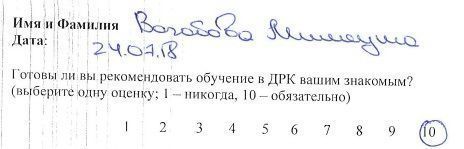 Имя и Фамилия
Дата: 24.07.18
Готовы ли вы рекомендовать обучение в ДРК вашим знакомым?
(выберите одну оценку; 1 – никогда, 10 – обязательно)
1 2 3 4 5 6 7 8 9 10